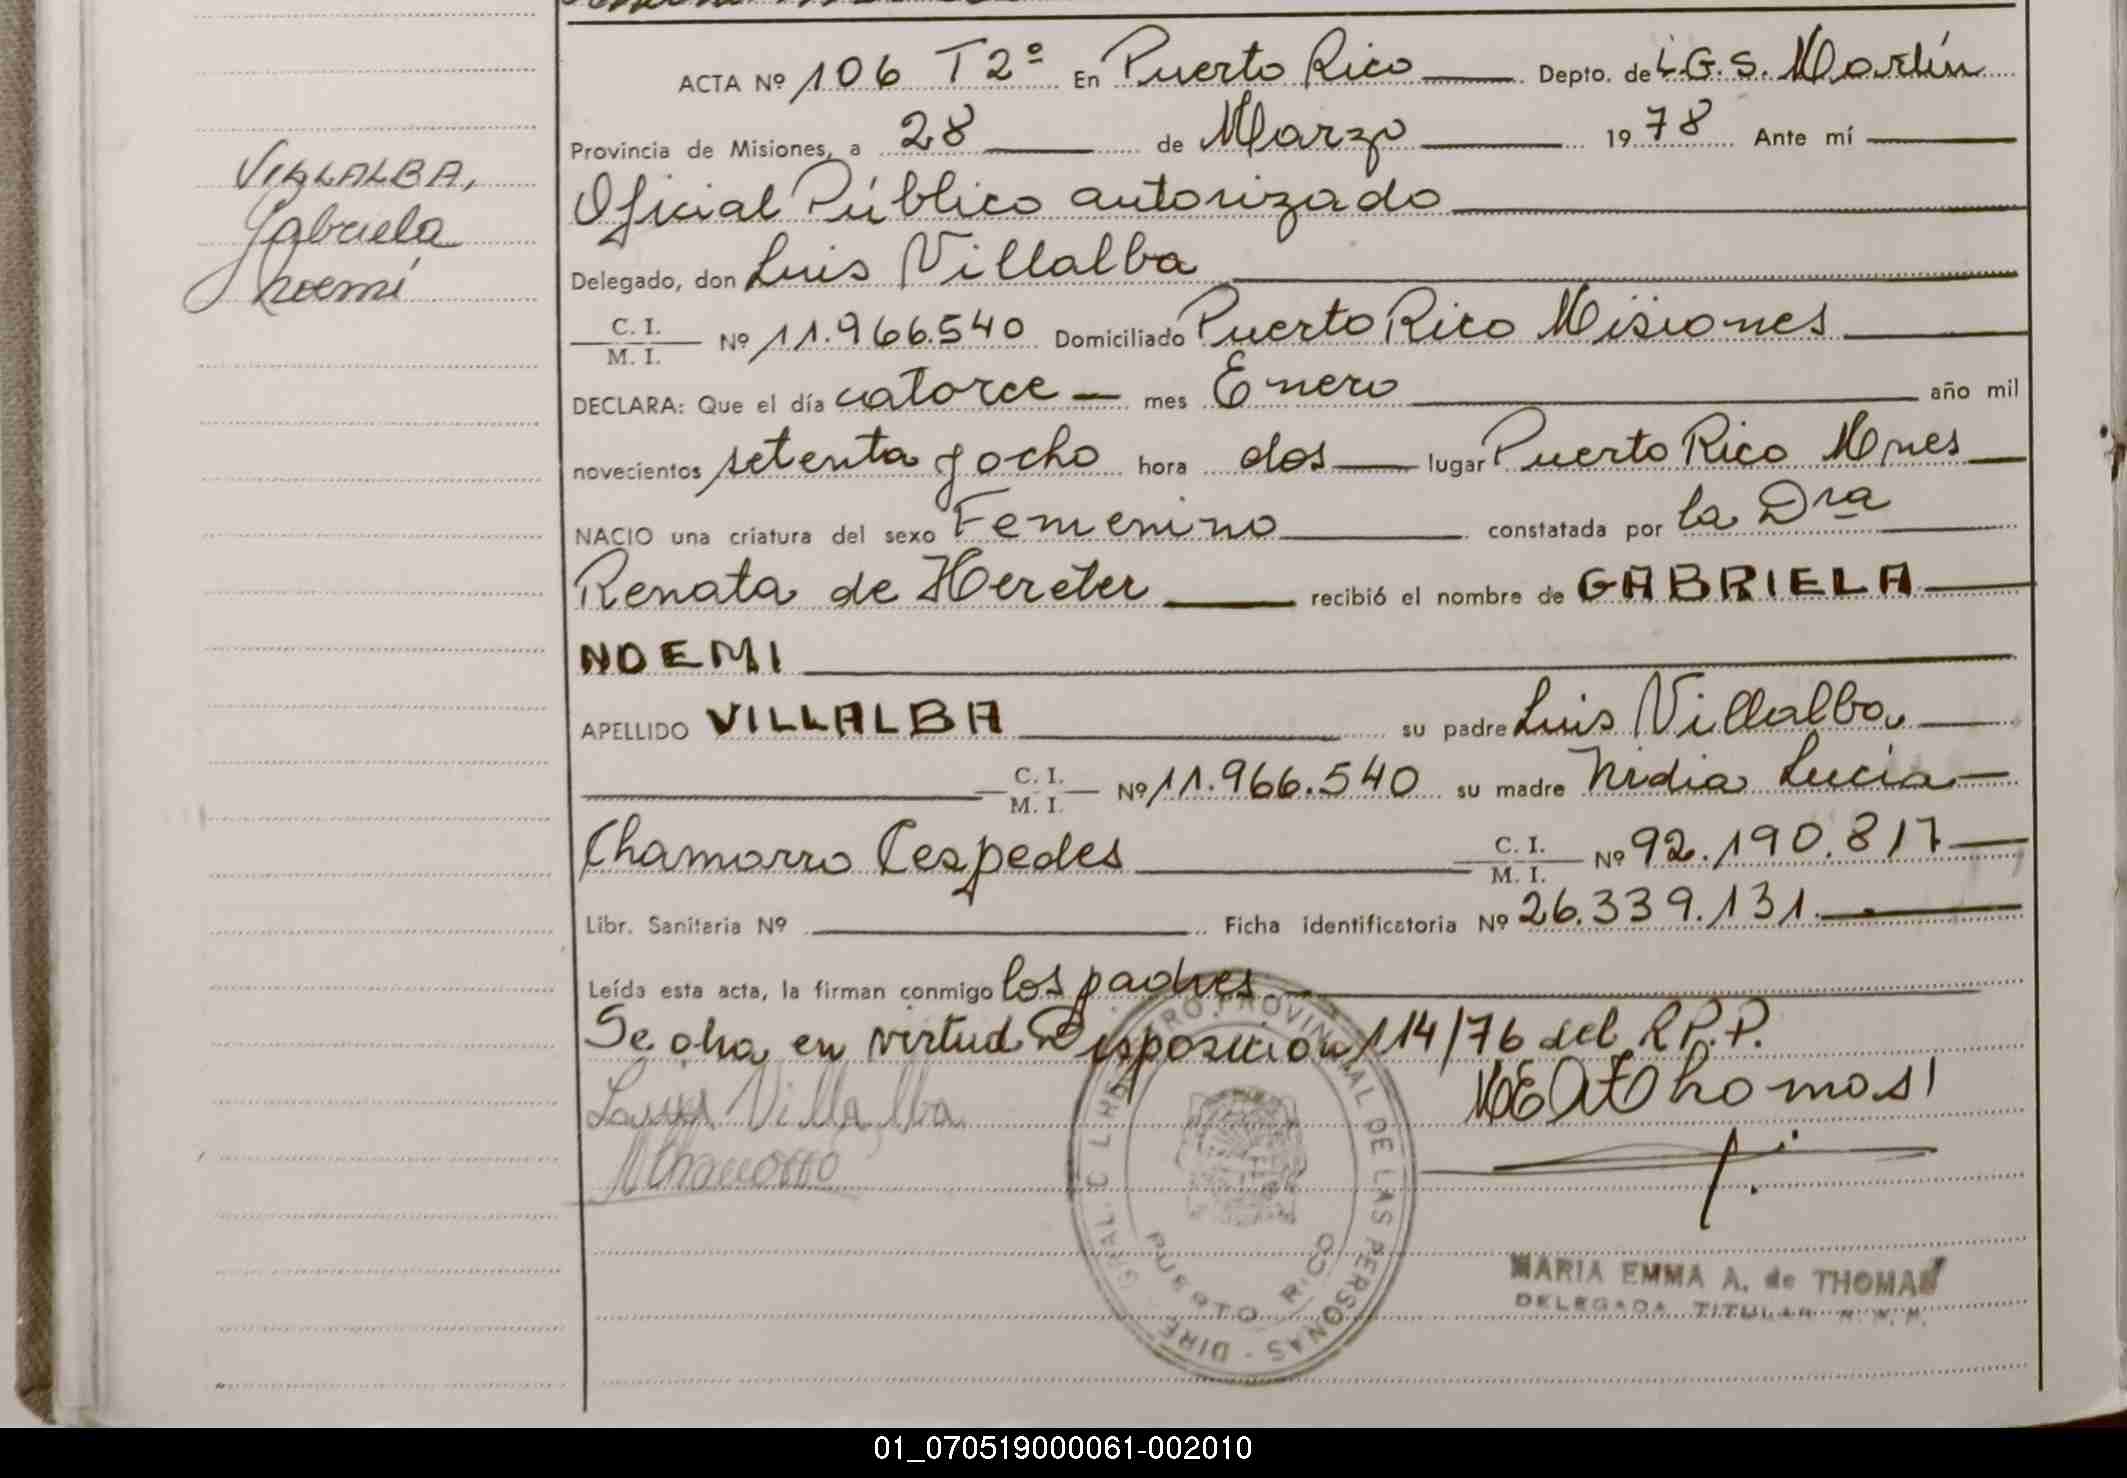 ACTA Nº 106 T2º En Puerto Rico Depto. de L.G.S. Martín
Provincia de Misiones, a 28 de Marzo 1978 Ante mí
VILLALBA,
Oficial Público autorizado
Gabriela
Delegado, don Luis Villalba
Noemí
C. I.
M. I. Nº 11.966.540 Domiciliado Puerto Rico Misiones
DECLARA: Que el día catorce mes Enero año mil
novecientos setenta y ocho hora dos lugar Puerto Rico Mnes
NACIO una criatura del sexo Femenino constatada por la Dra
Renata de Hereter recibió el nombre de GABRIELA
NOEMI
APELLIDO VILLALBA su padre Luis Villalba
C. I.
M. I. Nº 11.966.540 su madre Nidia Lucía
Chamorro Cespedes C. I.
M. I. Nº 92.190.817
Libr. Sanitaria Nº Ficha identificatoria Nº 26.339.131.
Leída esta acta, la firman conmigo los padres
Se ... en virtud Disposición 114/76 del R.P.P.
Luis Villalba
NChamorro
PROVINCIAL DE LAS PERSONAS - DIRE
GRAL.
PUERTO RICO
MARIA EMMA A. de THOMAS
DELEGADA TITULAR
01_070519000061-002010